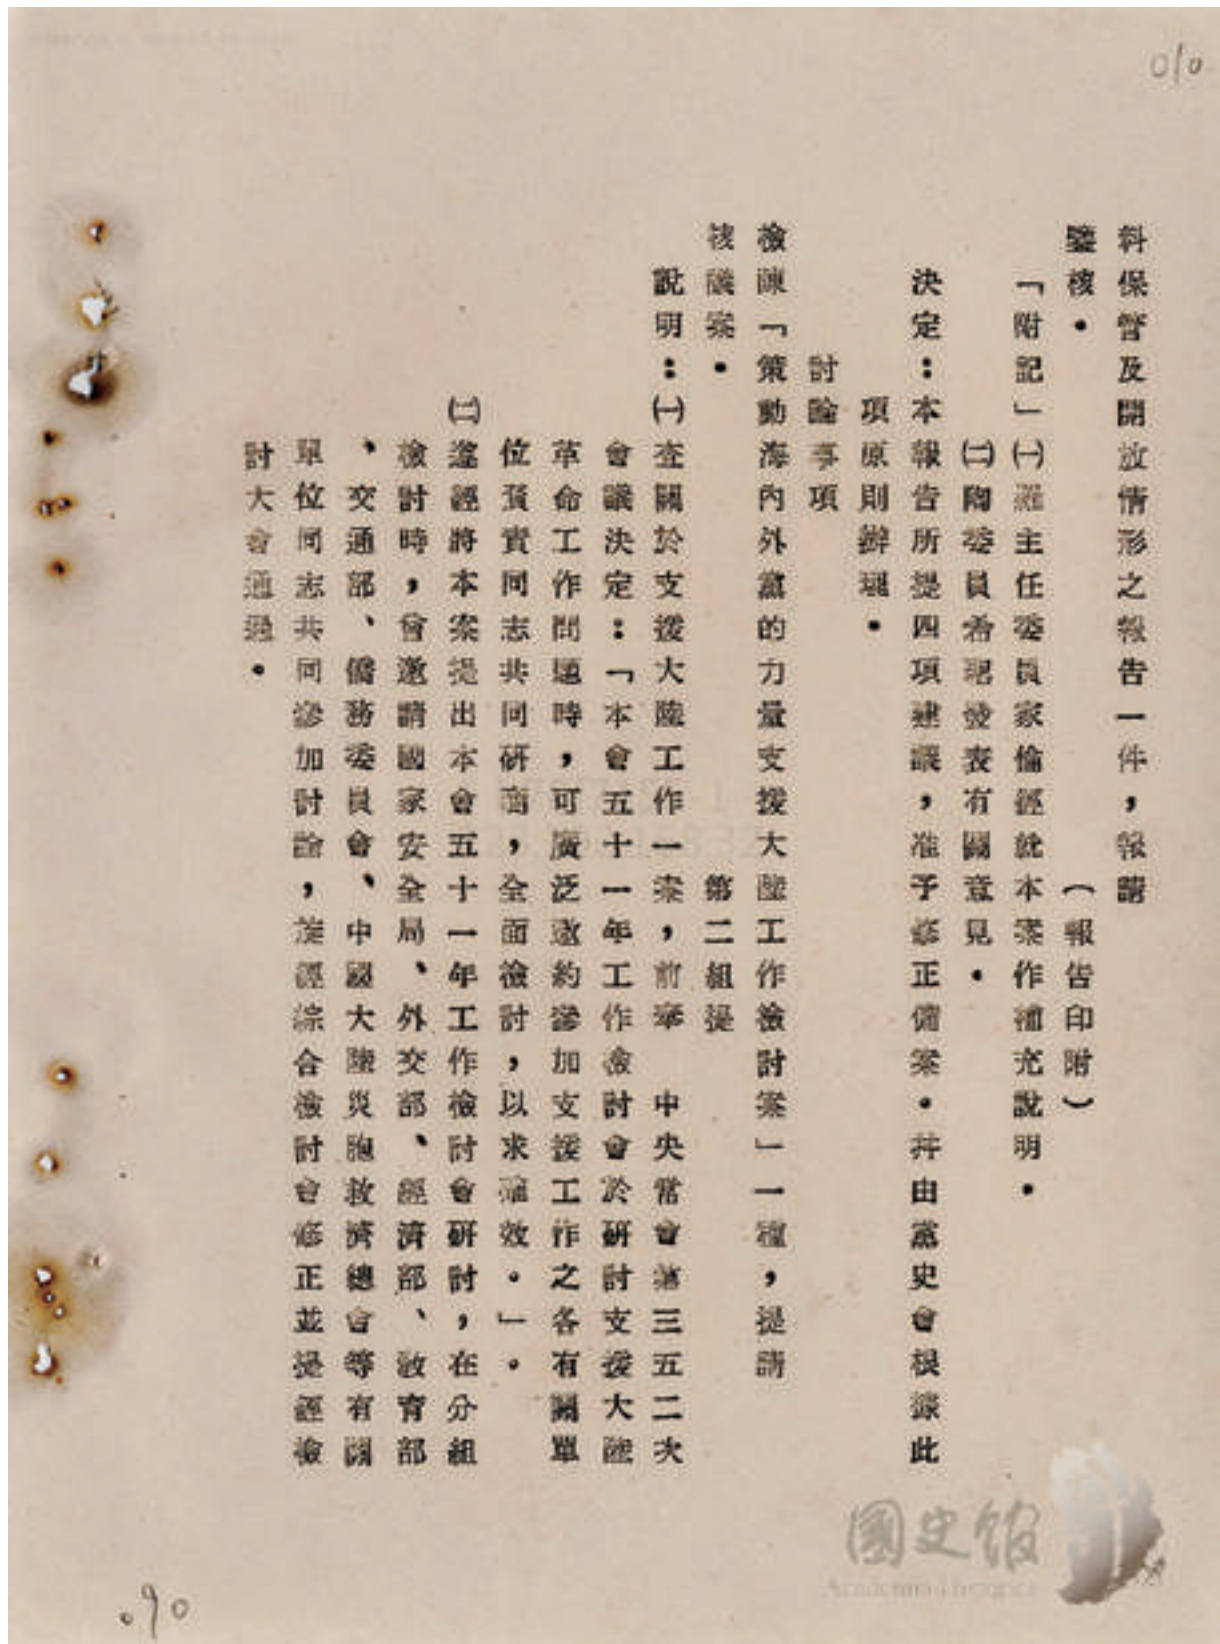 010
料保管及開放情形之報告一件，報請
鑒核。　（報告印附）
「附記」㈠羅主任委員家倫經就本案作補充說明。
㈡陶委員希聖發表有關意見。
決定：本報告所提四項建議，准予修正備案。并由黨史會根據此
項原則辦理。
討論事項
檢陳「策動海內外黨的力量支援大陸工作檢討案」一種，提請
核議案。　第二組提
說明：㈠查關於支援大陸工作一案，前奉　中央常會第三五二次
會議決定：「本會五十一年工作檢討會於研討支援大陸
革命工作問題時，可廣泛邀約參加支援工作之各有關單
位負責同志共同研商，全面檢討，以求確效。」。
㈡遵經將本案提出本會五十一年工作檢討會研討，在分組
檢討時，曾邀請國家安全局、外交部、經濟部、教育部
、交通部、僑務委員會、中國大陸災胞救濟總會等有關
單位同志共同參加討論，旋經綜合檢討會修正並提經檢
討大會通過。
國史館
Academia Historica
090